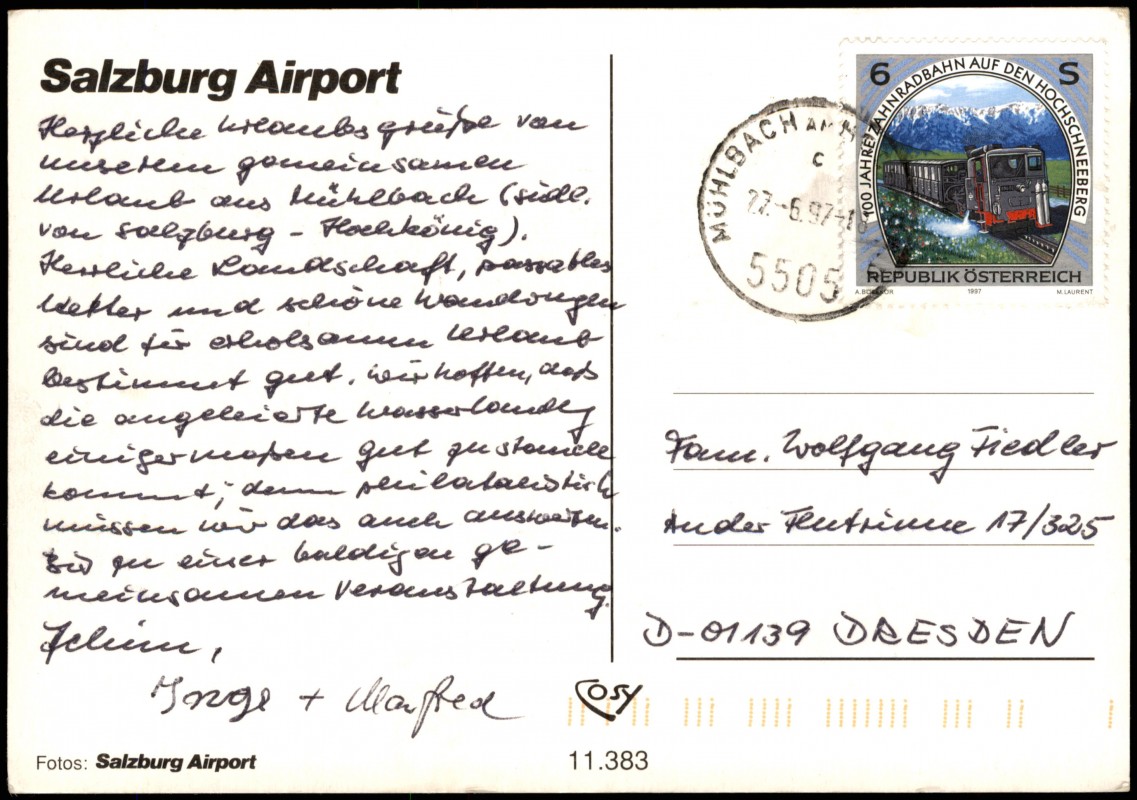 Salzburg Airport
Herzliche Urlaubsgrüße von
unserem gemeinsamen
Urlaub aus Mühlbach (südl.
von Salzburg - Hochkönig).
Herrliche Landschaft, passables
Wetter und schöne Wandrungen
sind für erholsamen Urlaub
bestimmt gut. Wir hoffen, daß
die angeleierte
einigermaßen gut zustande
kommt; denn philatelistisch
müssen wir das auch auswerten.
Bis zu einer baldigen ge-
meinsamen Veranstaltung.
Achim,
Inge + Manfred
Fotos: Salzburg Airport
11.383
6 S
100 JAHRE ZAHNRADBAHN AUF DEN HOCHSCHNEEBERG
REPUBLIK ÖSTERREICH
1997
M. LAURENT
MÜHLBACH AM H
c
27.-6.97-1
5505
Fam. Wolfgang Fiedler
An der Flutrinne 17/325
D-01139 DRESDEN